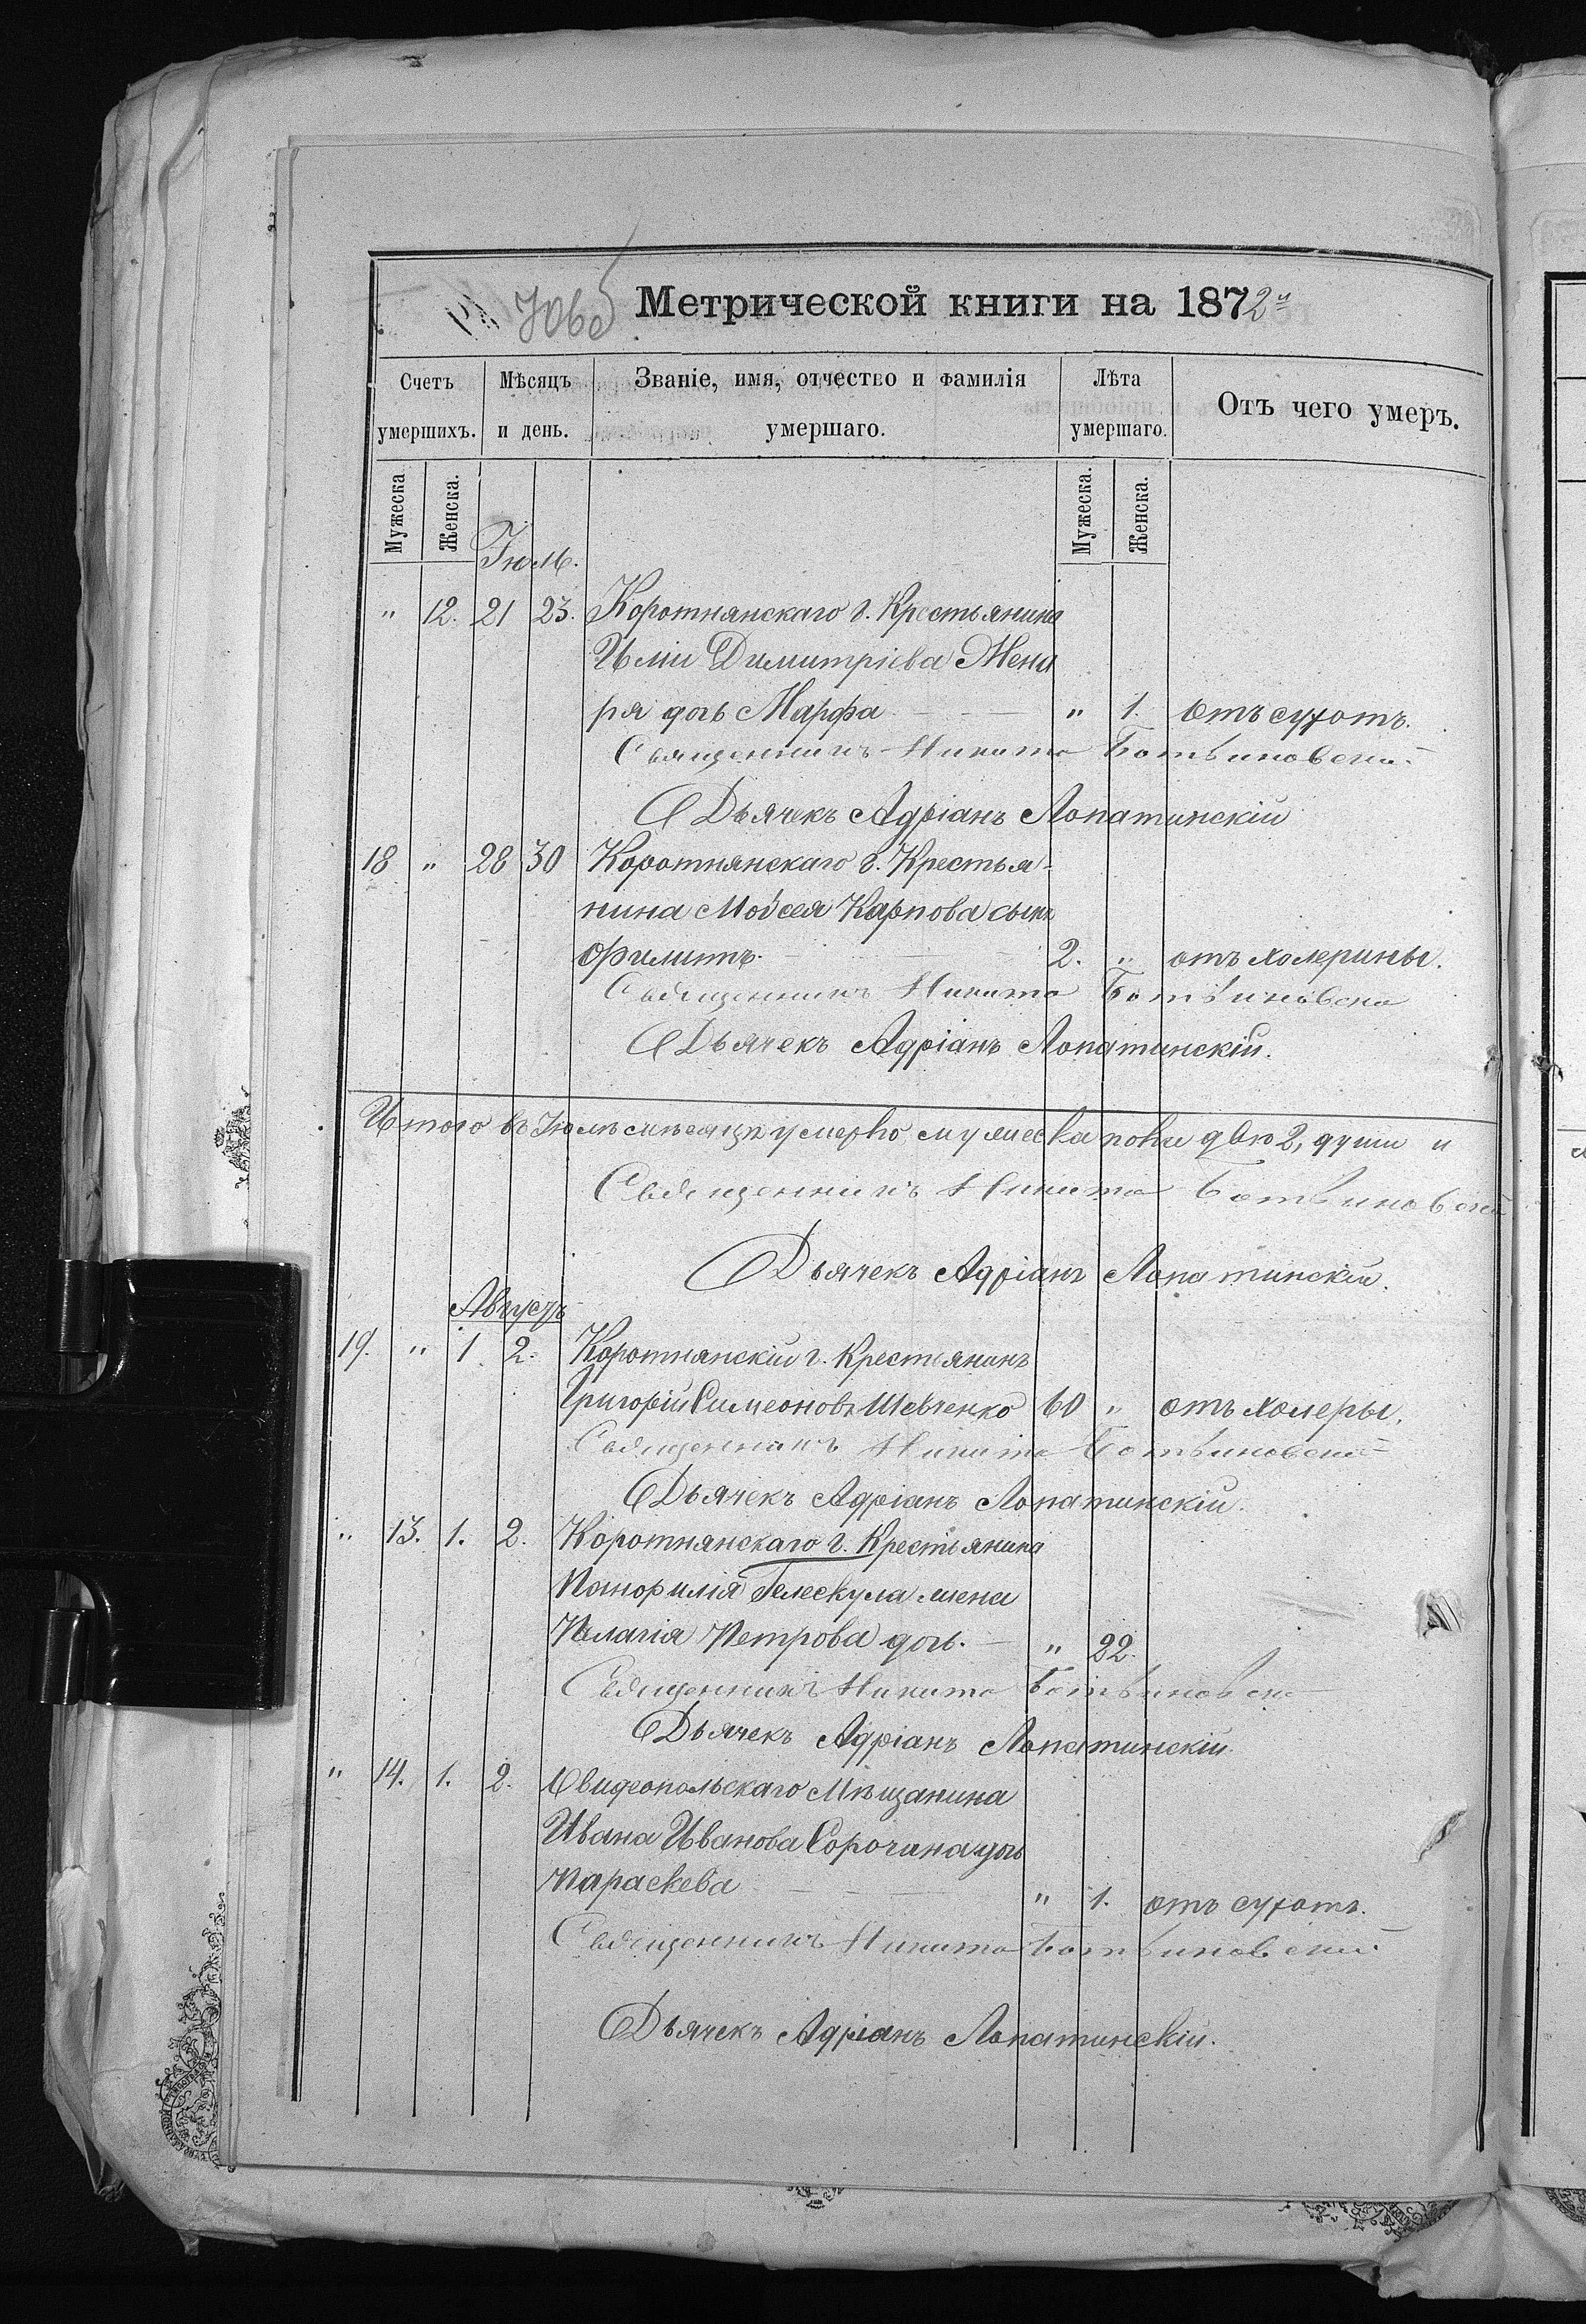 706 об
Метрической книги на 1872й
Счетъ умершихъ.
Мѣсяцъ и день.
Званіе, имя, отчество и фамилія умершаго.
Лѣта умершаго.
Отъ чего умеръ.
Мужеска
Женска.
Мужеска.
Женска.
Іюль.
" 12. 21 23. Коротнянскаго г. Крестьянина
Иліи Димитріева Жена
ря дочь Марфа " 1. отъ сухотъ.
Священникъ Никита Ботвиновскій
Дьячекъ Адріанъ Лопатинскій
18 " 28 30 Коротнянскаго г. Крестья-
нина Мойсея Карпова сынъ
Филиппъ. 2. " отъ холерины.
Священникъ Никита Ботвиновскій
Дьячекъ Адріанъ Лопатинскій.
Итого въ Іюлѣ мѣсяцѣ умерло мужеска пола двѣ 2, души и
Священникъ Никита Ботвиновскій
Дьячекъ Адріанъ Лопатинскій.
Августъ
19. " 1 2. Коротнянскій г. Крестьянинъ
Григорій Симеоновъ Шевченко 60 " отъ холеры.
Священникъ Никита Ботвиновскій
Дьячекъ Адріанъ Лопатинскій.
" 13. 1. 2. Коротнянскаго г. Крестьянина
Панфилія Гелескула жена
Пелагія Петрова дочь. " 22.
Священникъ Никита Ботвиновскій
Дьячекъ Адріанъ Лопатинскій
" 14. 1. 2. Овидеопольскаго Мѣщанина
Ивана Иванова Сорочана дочь
Параскева " 1. отъ сухотъ.
Священникъ Никита Ботвиновскій
Дьячекъ Адріанъ Лопатинскій.